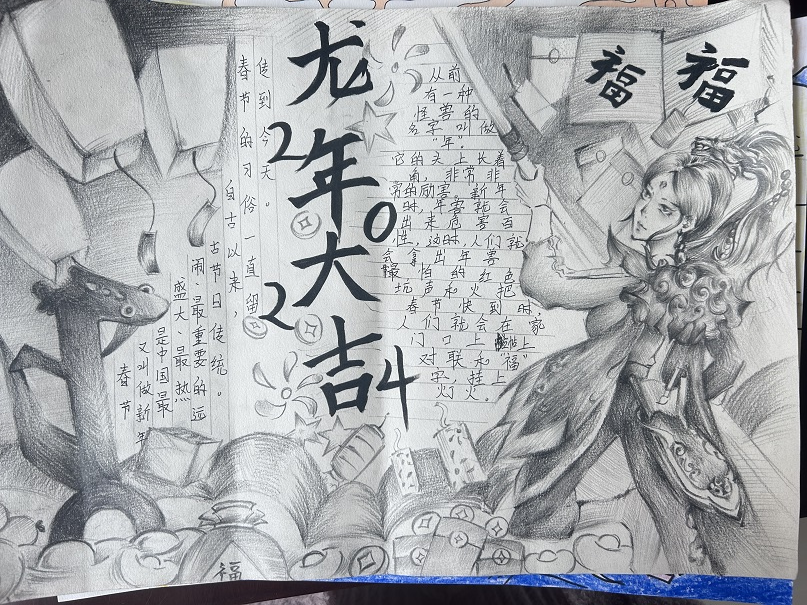 龙年大吉
2024
春节
又叫做新年
是中国最
盛大、最热
闹、最重要的远
古节日传统。
自古以来，
春节的习俗一直留
传到今天。
从前
有一种
怪兽的
名字叫做
“年”。
它的头上长着
角，非常非
常的励害，新年
时，年害就会
出来危害百
性，这时，人们就
会拿出年兽
最怕的红色
坑声和火把。
春节快到时，
人们就会在家
门口上贴上
对联和“福”
字，挂上
灯火。
福
福
福